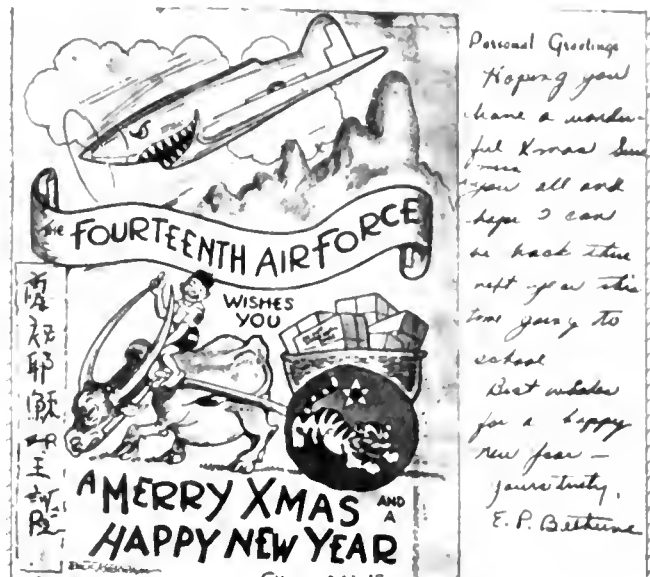 the FOURTEENTH AIR FORCE
WISHES
YOU
A MERRY XMAS AND
A
HAPPY NEW YEAR
恭祝耶穌聖誕
Personal Greetings
Hoping you
have a wonder-
ful Xmas
you all and
hope I can
be back there
next year this
time going to
school
Best wishes
for a happy
new year –
yours truly,
E. P. Bethune